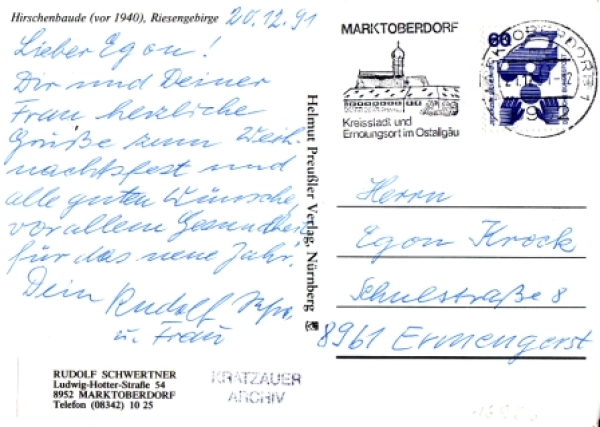 Hirschenbaude (vor 1940), Riesengebirge
20.12.91
Lieber Egon!
Dir und Deiner
Frau herzliche
Grüße zum Weih-
nachtsfest und
alle guten Wünsche,
vor allem Gesundheit
für das neue Jahr!
Dein Rudolf
u. Frau
RUDOLF SCHWERTNER
Ludwig-Hotter-Straße 54
8952 MARKTOBERDORF
Telefon (08342) 10 25
KRATZAUER
ARCHIV
Helmut Preußler Verlag, Nürnberg
MARKTOBERDORF
Kreisstadt und
Erholungsort im Ostallgäu
60
Herrn
Egon Krock
Schulstraße 8
8961 Ermengerst